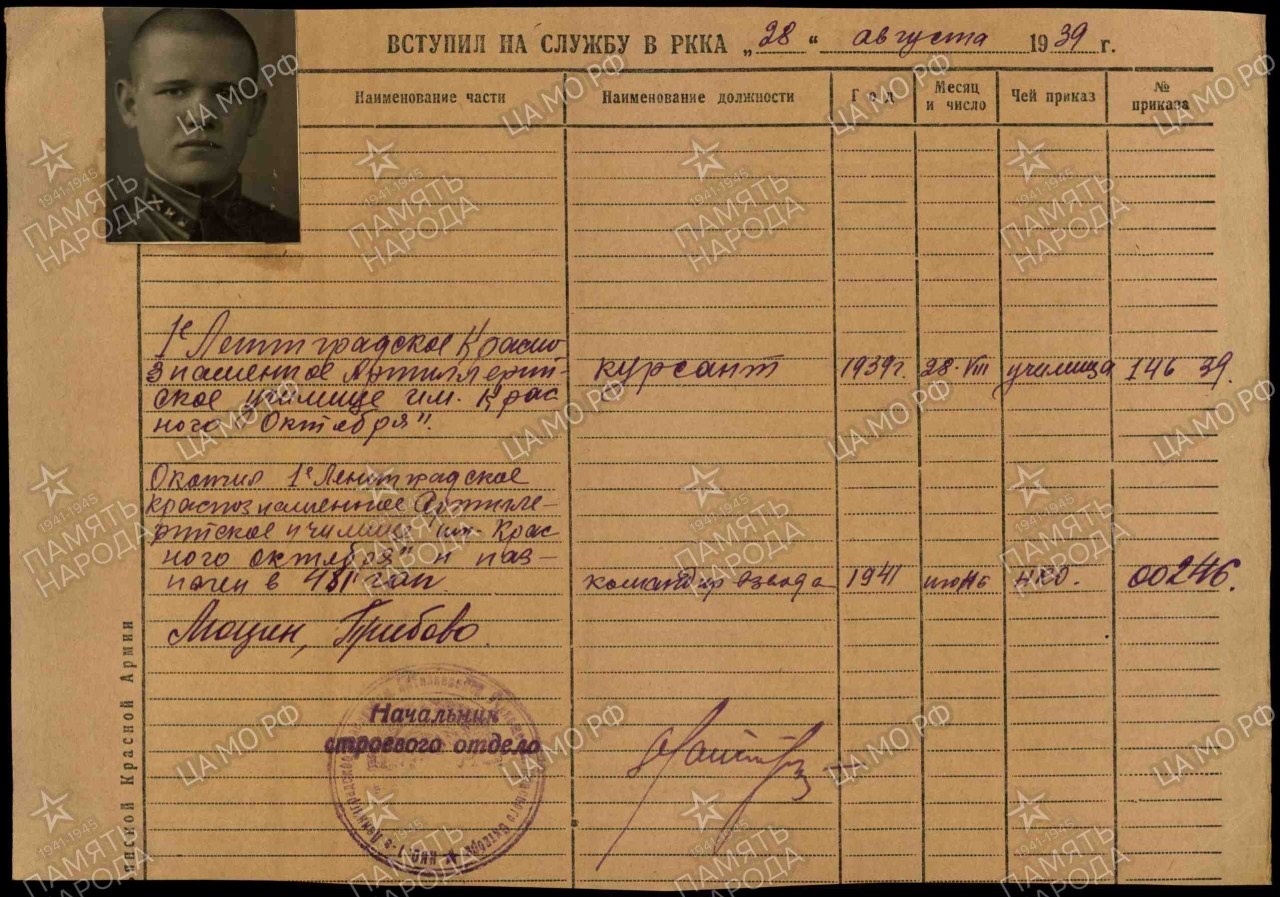 ВСТУПИЛ НА СЛУЖБУ В РККА „28“ августа 1939 г.
Наименование части Наименование должности Год Месяц и число Чей приказ № приказа
1е Ленинградское Красно
знаменное Артиллерий- курсант 1939г. 28.VIII училища 146 39.
ское училище им. Крас
ного Октября".
Окончил 1е Ленинградское
краснознаменное Артилле-
рийское училище им. Крас
ного октября" и наз-
начен в 481 гап. командир взвода 1941 июнь НКО. 00246.
Начальник
строевого отдела
нской Красной Армии
ПАМЯТЬ НАРОДА
1941-1945
ЦА МО РФ